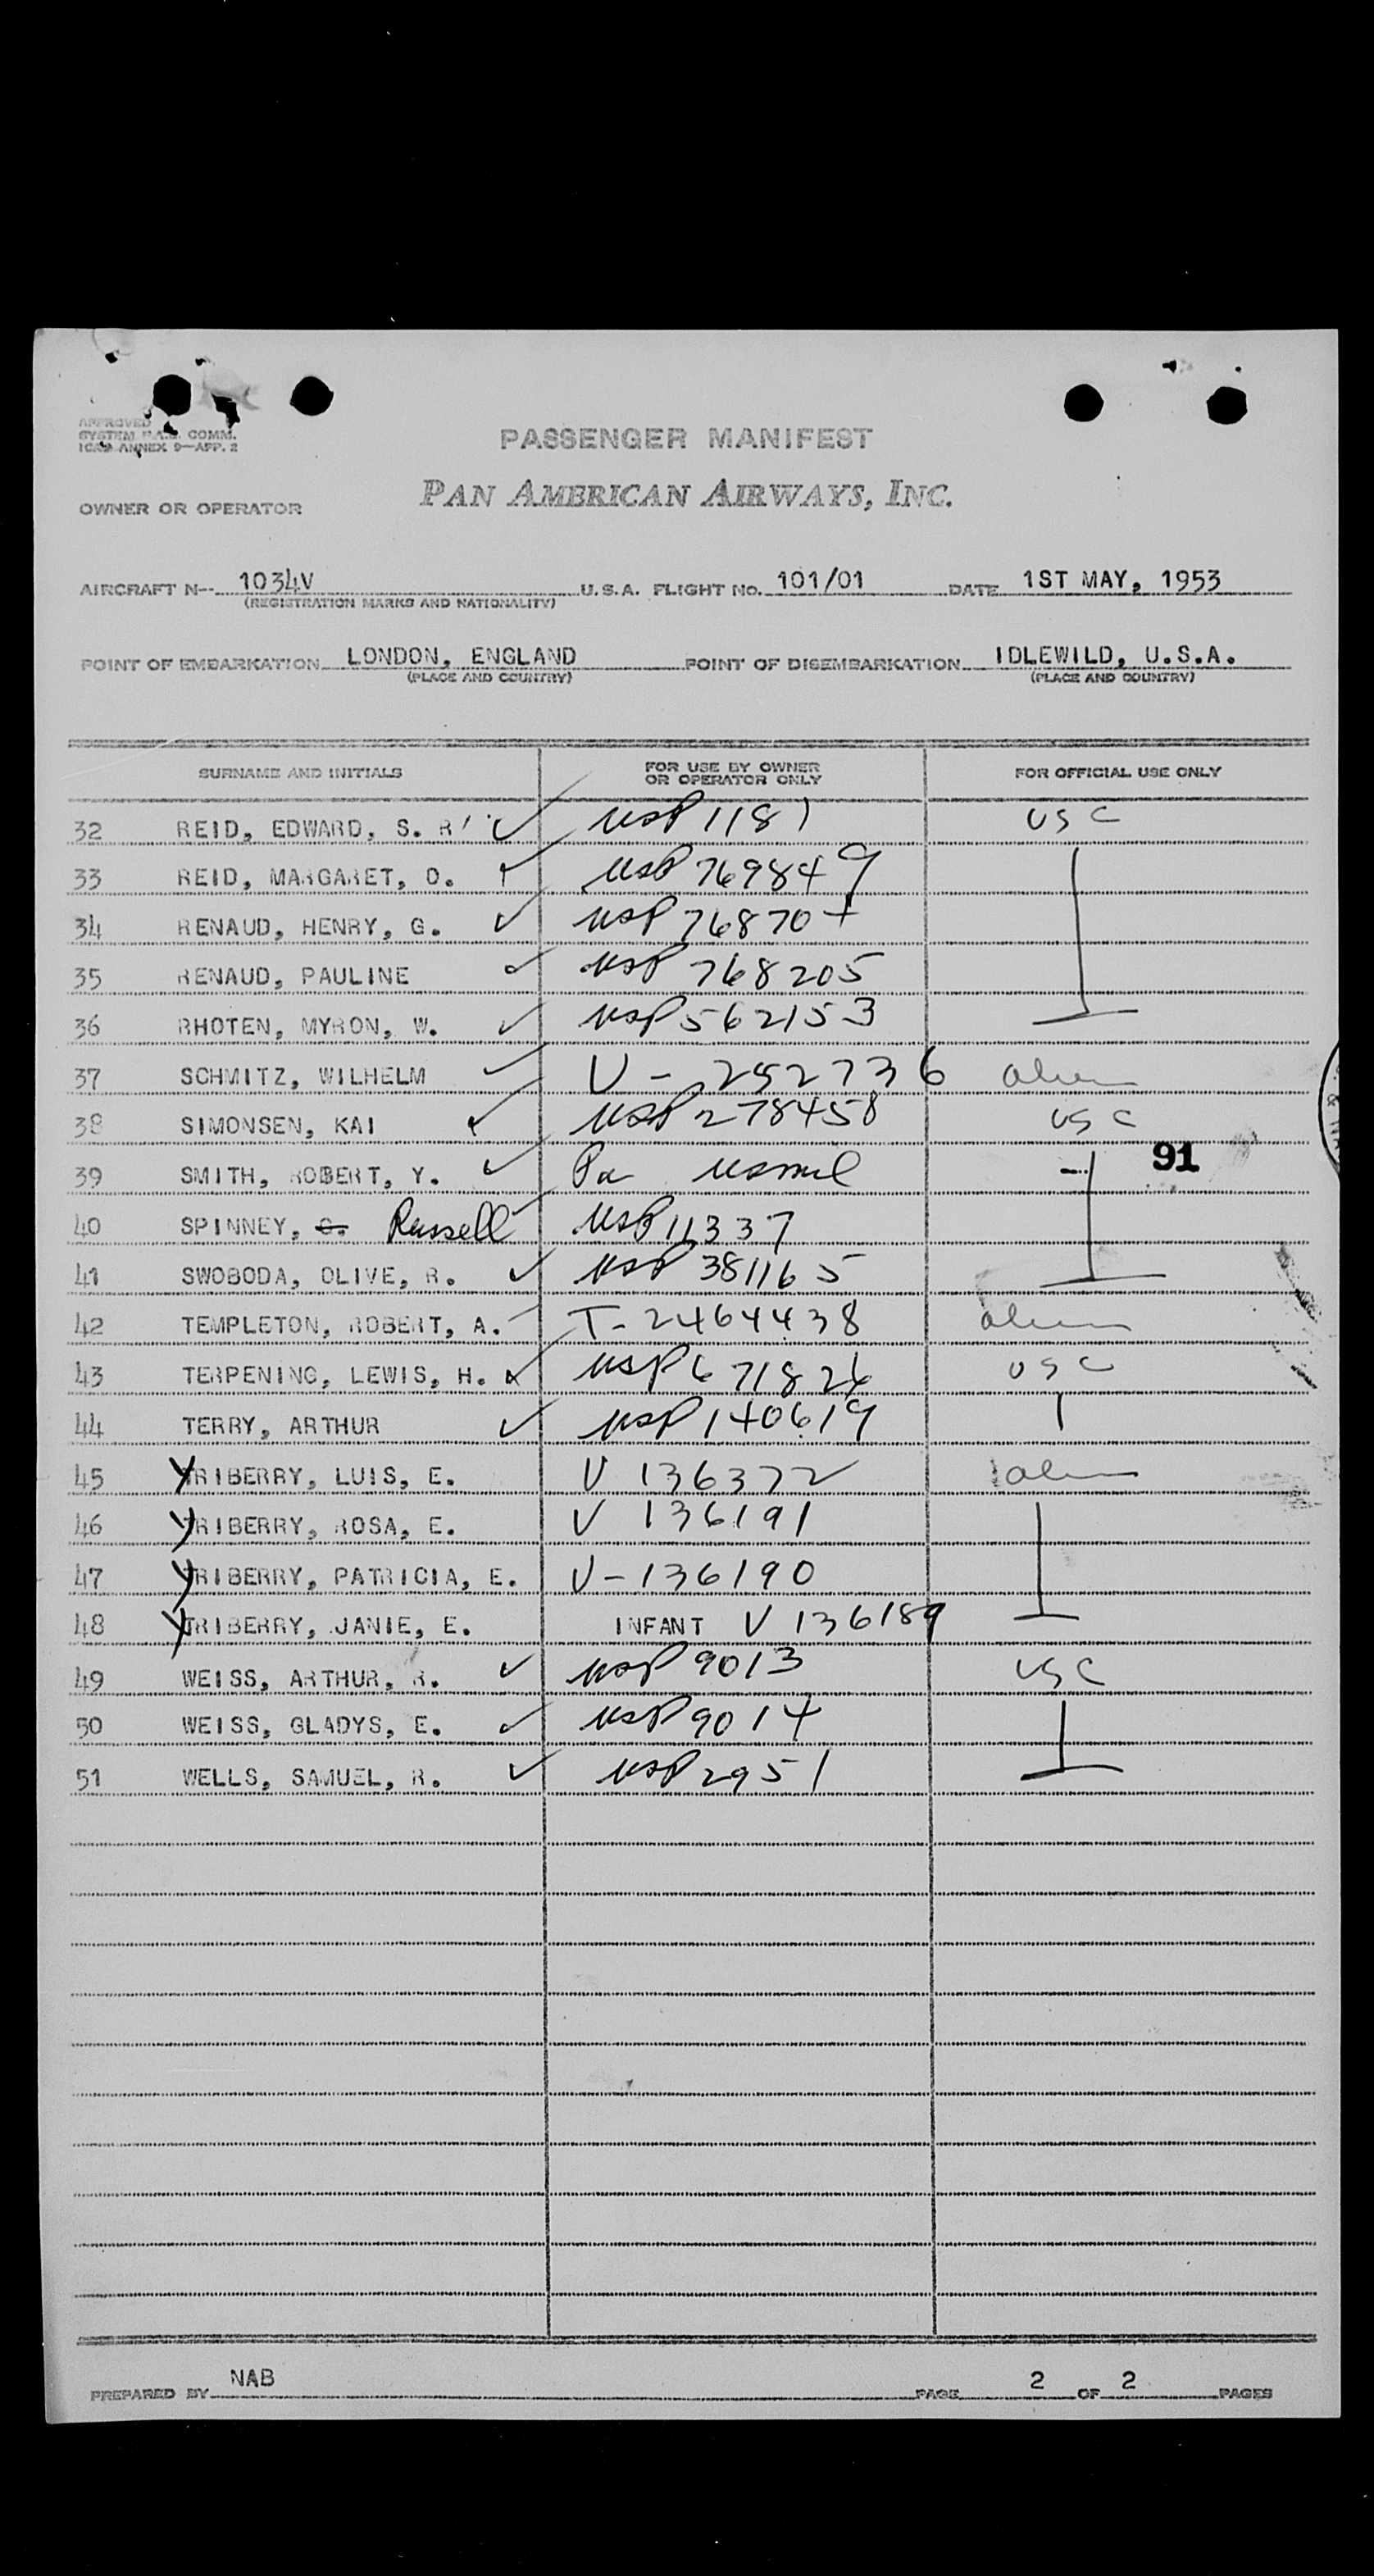 APPROVED
SYSTEM COMM.
ICAO ANNEX 9—APP. 2
PASSENGER MANIFEST
OWNER OR OPERATOR PAN AMERICAN AIRWAYS, INC.
AIRCRAFT N-- 1034V U.S.A. FLIGHT NO. 101/01 DATE 1ST MAY, 1953
(REGISTRATION MARKS AND NATIONALITY)
POINT OF EMBARKATION LONDON, ENGLAND POINT OF DISEMBARKATION IDLEWILD, U.S.A.
(PLACE AND COUNTRY) (PLACE AND COUNTRY)
SURNAME AND INITIALS FOR USE BY OWNER OR OPERATOR ONLY FOR OFFICIAL USE ONLY
32 REID, EDWARD, S. R. USP 1181 USC
33 REID, MARGARET, O. USP 769849
34 RENAUD, HENRY, G. USP
35 RENAUD, PAULINE USP 768205
36 RHOTEN, MYRON, W. USP 562153
37 SCHMITZ, WILHELM V- 252736 alien
38 SIMONSEN, KAI USP 278458 USC
39 SMITH, ROBERT, Y. usmil 91
40 SPINNEY, G. Russell USP 11337
41 SWOBODA, OLIVE, R. USP 381165
42 TEMPLETON, ROBERT, A. T-2464438 alien
43 TERPENING, LEWIS, H. USP 671826 USC
44 TERRY, ARTHUR USP 140619
45 YRIBERRY, LUIS, E. V 136372 alien
46 YRIBERRY, ROSA, E. V 136191
47 YRIBERRY, PATRICIA, E. V-136190
48 YRIBERRY, JANIE, E. INFANT V 136189
49 WEISS, ARTHUR, R. USP 9013 USC
50 WEISS, GLADYS, E. USP 9014
51 WELLS, SAMUEL, R. USP 2951
PREPARED BY NAB PAGE 2 OF 2 PAGES